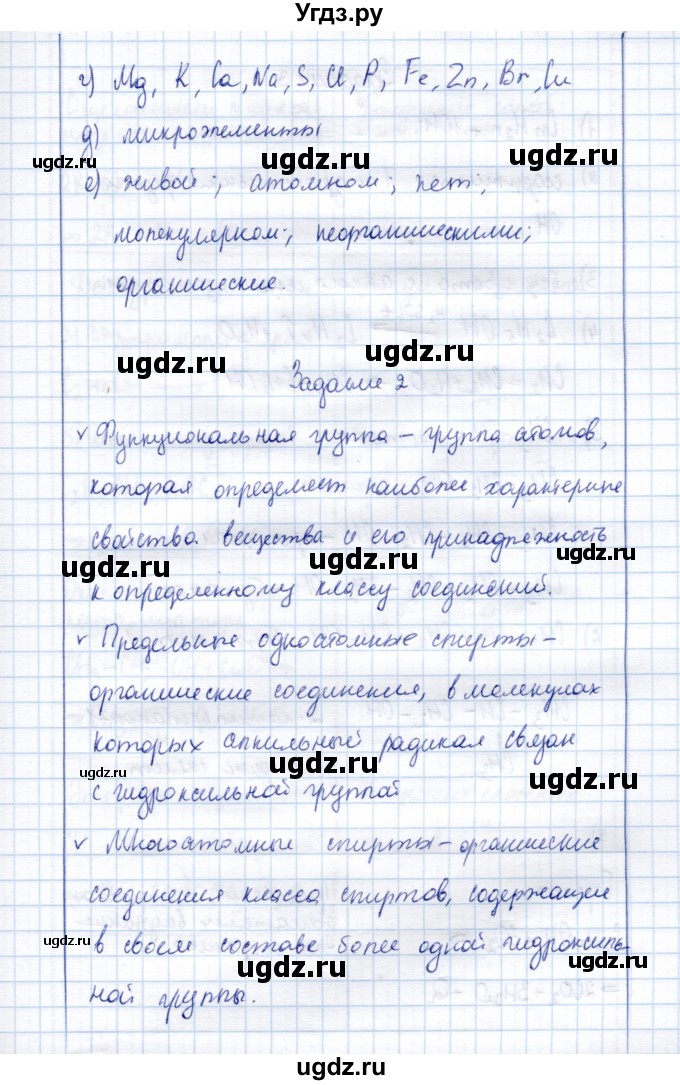 Угдз.ру
г) Mg, K, Ca, Na, S, Cl, P, Fe, Zn, Br, Cu
д) микроэлементы
ugdz.ru ugdz.ru ugdz.ru
е) живой; атомном; нет;
молекулярном; неорганическими;
органические.
ugdz.ru ugdz.ru
Задание 2
v Функциональная группа – группа атомов,
ugdz.ru ugdz.ru
которая определяет наиболее характерные
свойства вещества и его принадлежность
ugdz.ru ugdz.ru ugdz.ru
к определенному классу соединений.
v Предельные одноатомные спирты –
ugdz.ru ugdz.ru
органические соединения, в молекулах
которых алкильный радикал связан
ugdz.ru ugdz.ru ugdz.ru
с гидроксильной группой
v Многоатомные спирты – органические
ugdz.ru ugdz.ru
соединения класса спиртов, содержащие
в своем составе более одной гидроксиль-
ugdz.ru ugdz.ru ugdz.ru
ной группы.
ugdz.ru